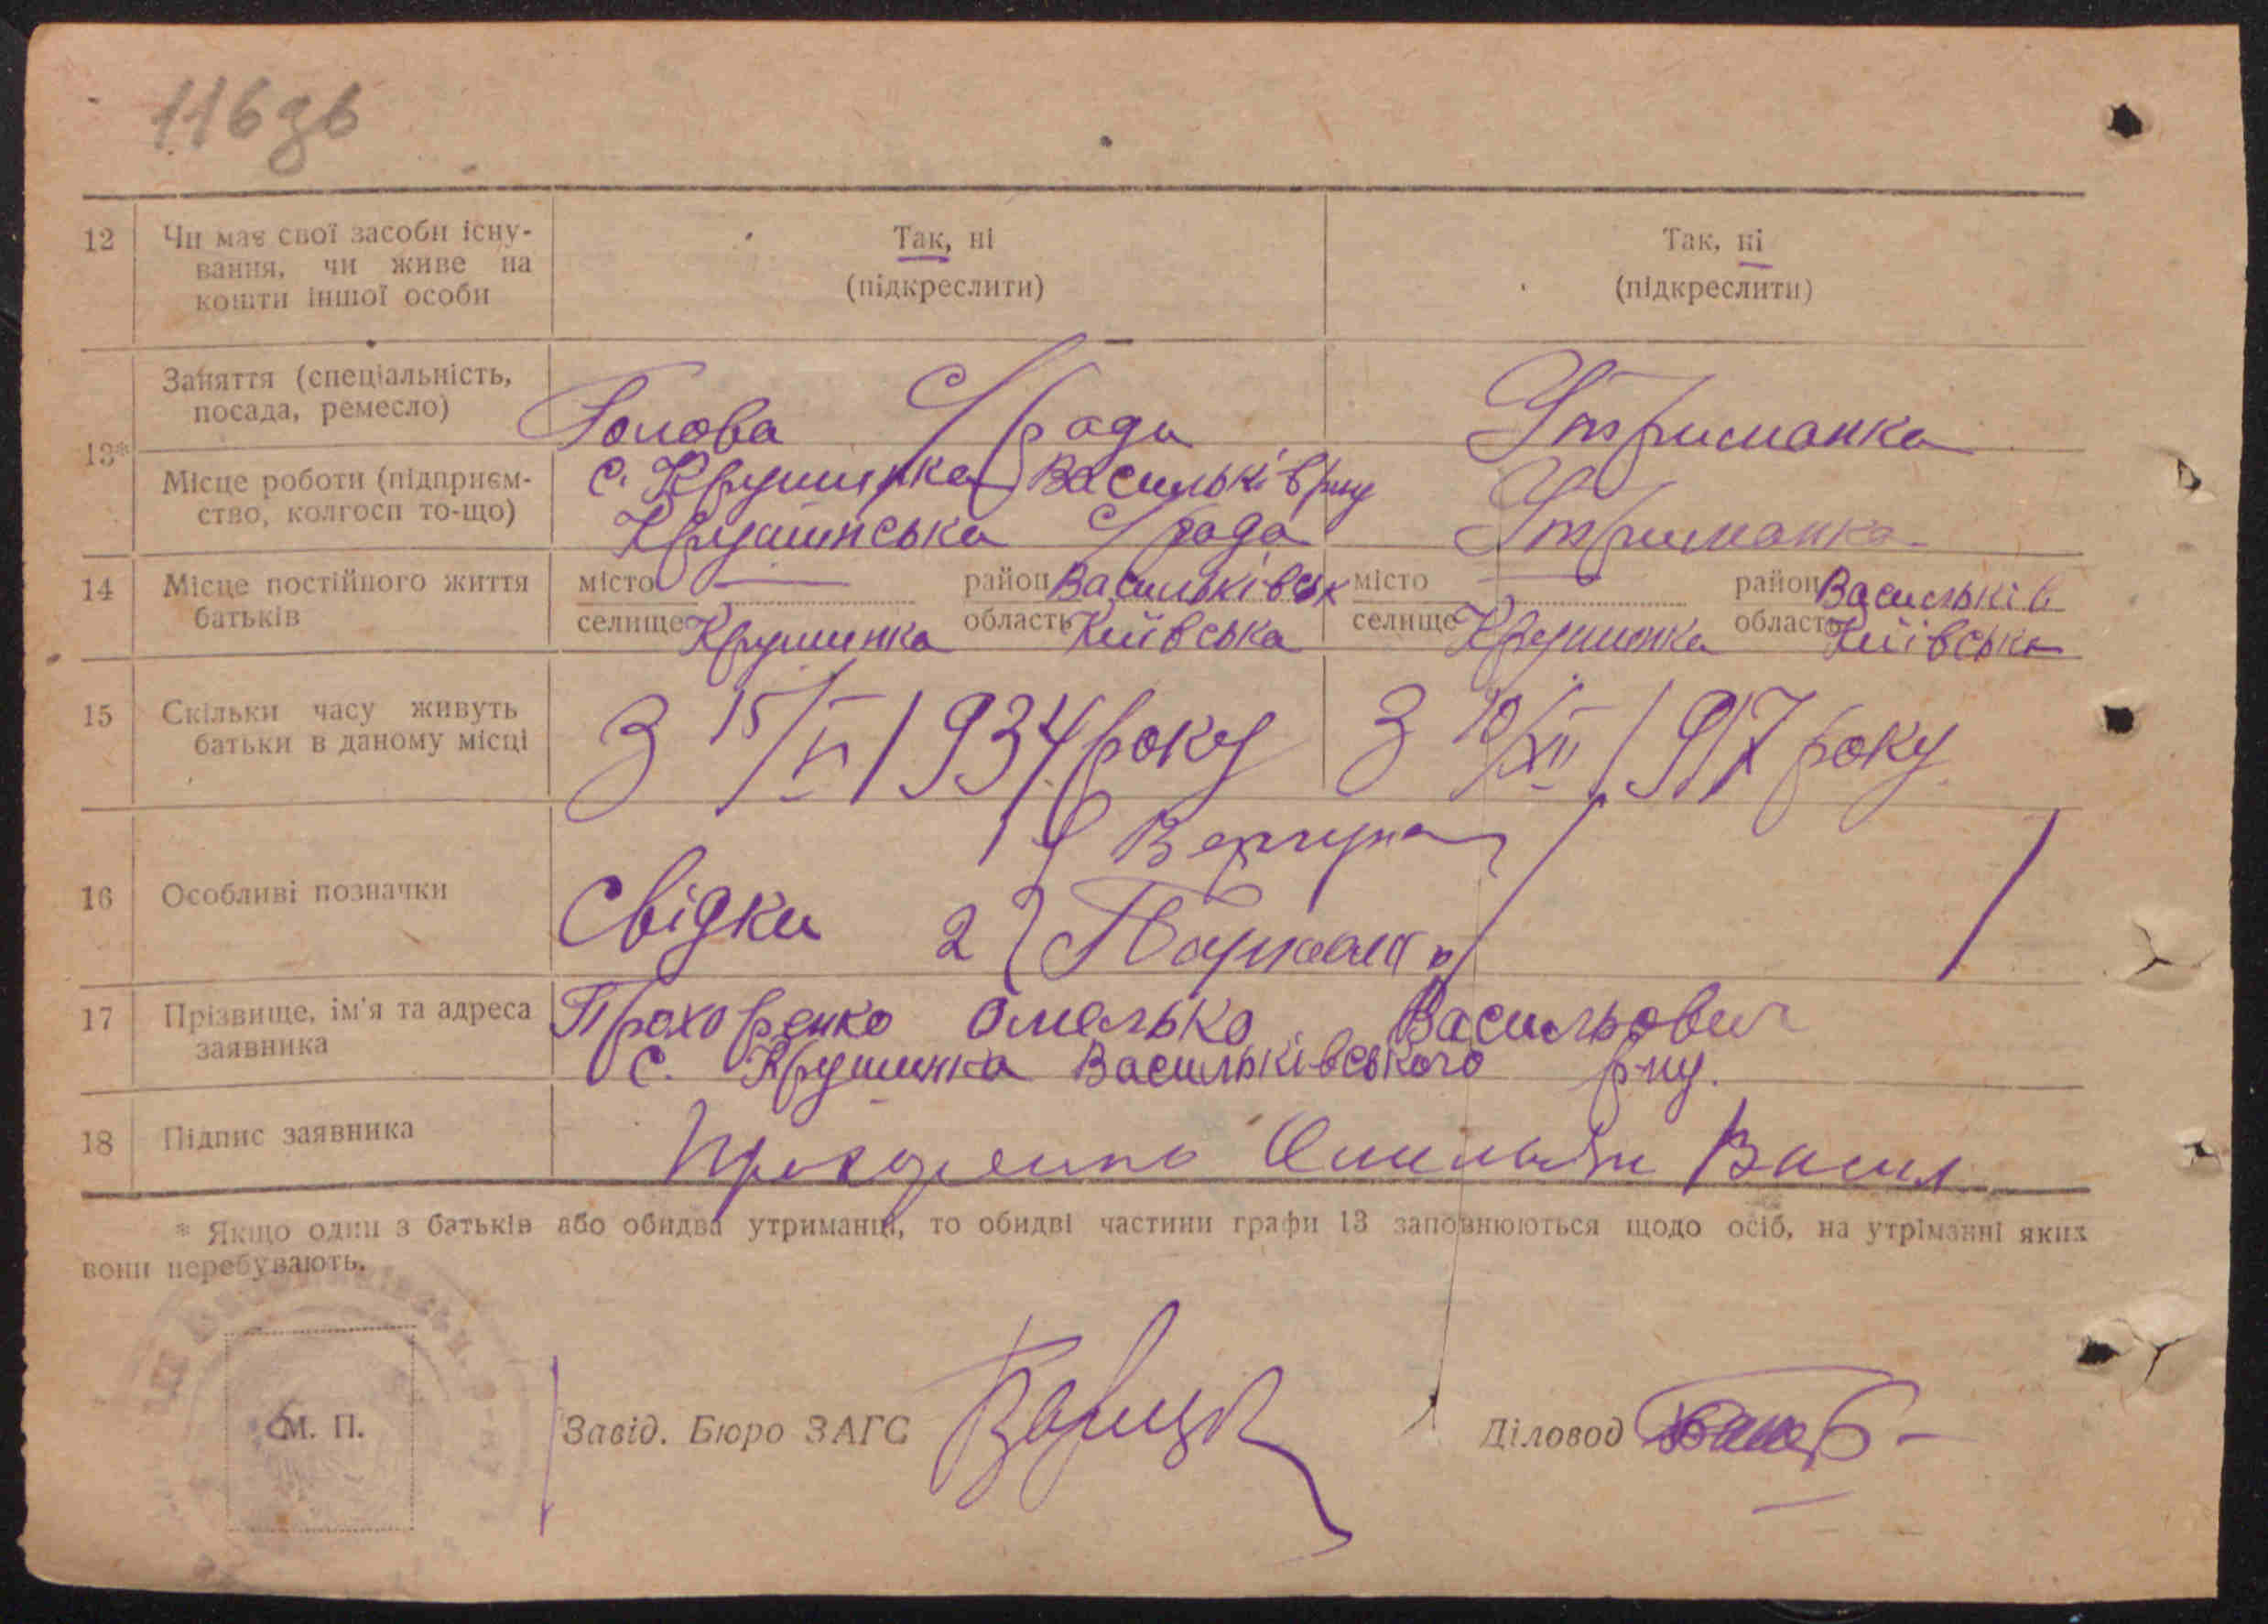 116зв
12 Чи має свої засоби існу- Так, ні Так, ні
вання, чи живе на (підкреслити) (підкреслити)
кошти іншої особи
13* Заняття (спеціальність, Голова С/ради Утриманка
посада, ремесло)
Місце роботи (підприєм- с. Крушинка Васильків р-ну Утриманка
ство, колгосп то-що) Крушинська С/рада
14 Місце постійного життя місто — район Васильківськ місто — район Васильків
батьків селище Крушинка область Київська селище Крушинка область Київська
15 Скільки часу живуть З 15/VI 1934 року З 10/XII 1917 року
батьки в даному місці
16 Особливі позначки Свідки 1)
2)
17 Прізвище, ім'я та адреса Прохоренко Омелько Васильович
заявника с. Крушинка Васильківського р-ну.
18 Підпис заявника Прохоренко Васил
* Якщо один з батьків або обидва утриманці, то обидві частини графи 13 заповнюються щодо осіб, на утріманні яких
вони перебувають.
М. П. Завід. Бюро ЗАГС Діловод